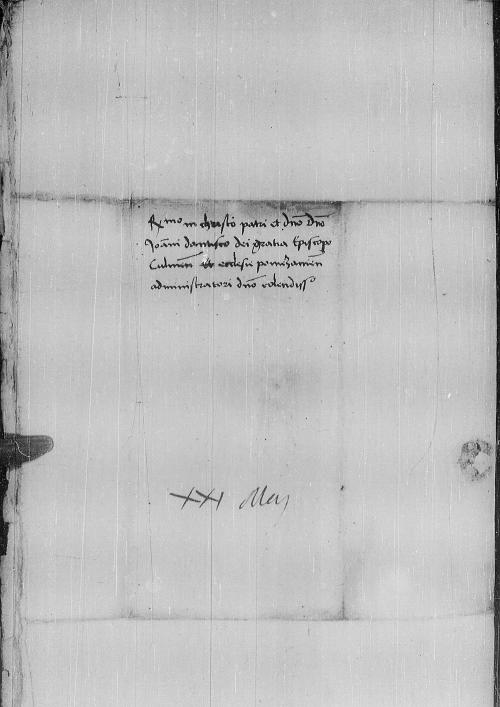 R^mo in christo patri et dno Dno
Joani dantisco dei gratia Episcopo
Culmen et ecclesie pomezanien
administratori dno colendiss
XXI Maij